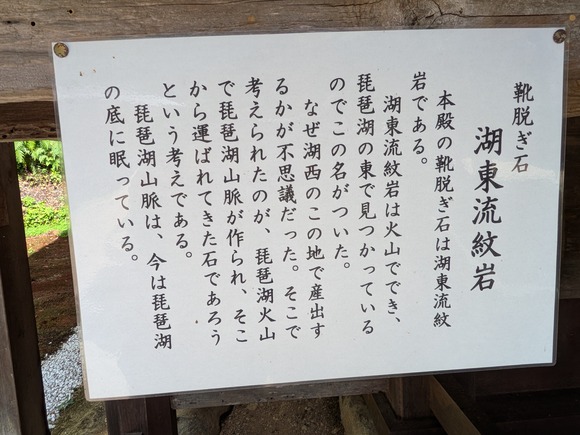 靴脱ぎ石
湖東流紋岩
本殿の靴脱ぎ石は湖東流紋
岩である。
湖東流紋岩は火山ででき、
琵琶湖の東で見つかっている
のでこの名がついた。
なぜ湖西のこの地で産出す
るかが不思議だった。そこで
考えられたのが、琵琶湖火山
で琵琶湖山脈が作られ、そこ
から運ばれてきた石であろう
という考えである。
琵琶湖山脈は、今は琵琶湖
の底に眠っている。